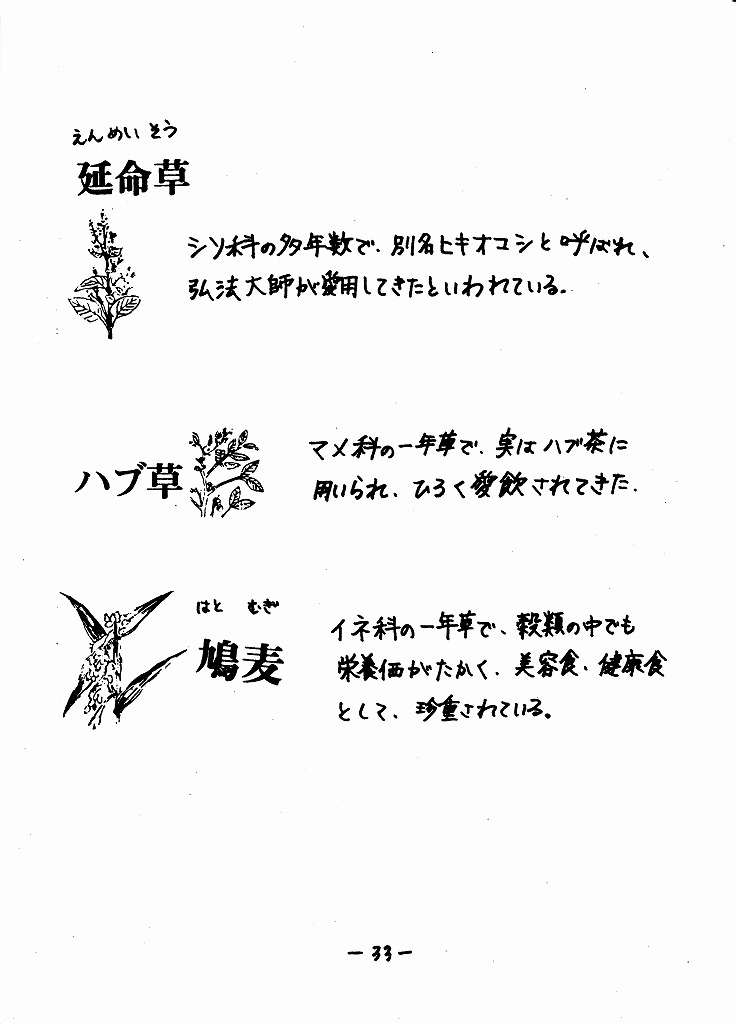 えんめいそう
延命草
シソ科の多年数で、別名ヒキオコシと呼ばれ、
弘法大師が愛用してきたといわれている。
ハブ草
マメ科の一年草で、実はハブ茶に
用いられ、ひろく愛飲されてきた.
はと むぎ
鳩麦
イネ科の一年草で、穀類の中でも
栄養価がたかく、美容食・健康食
として、珍重されている。
－33－